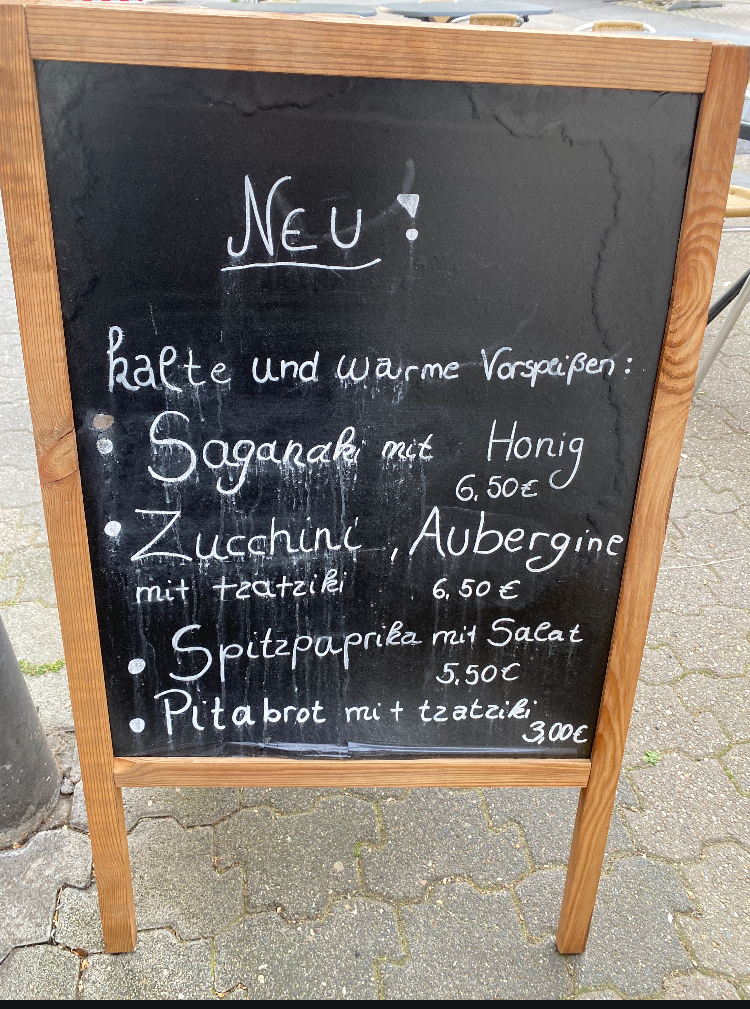 NEU!
kalte und warme Vorspeißen:
• Saganaki mit Honig
6,50€
• Zucchini, Aubergine
mit tzatziki 6,50€
• Spitzpaprika mit Salat
5,50€
• Pitabrot mit tzatziki
3,00€